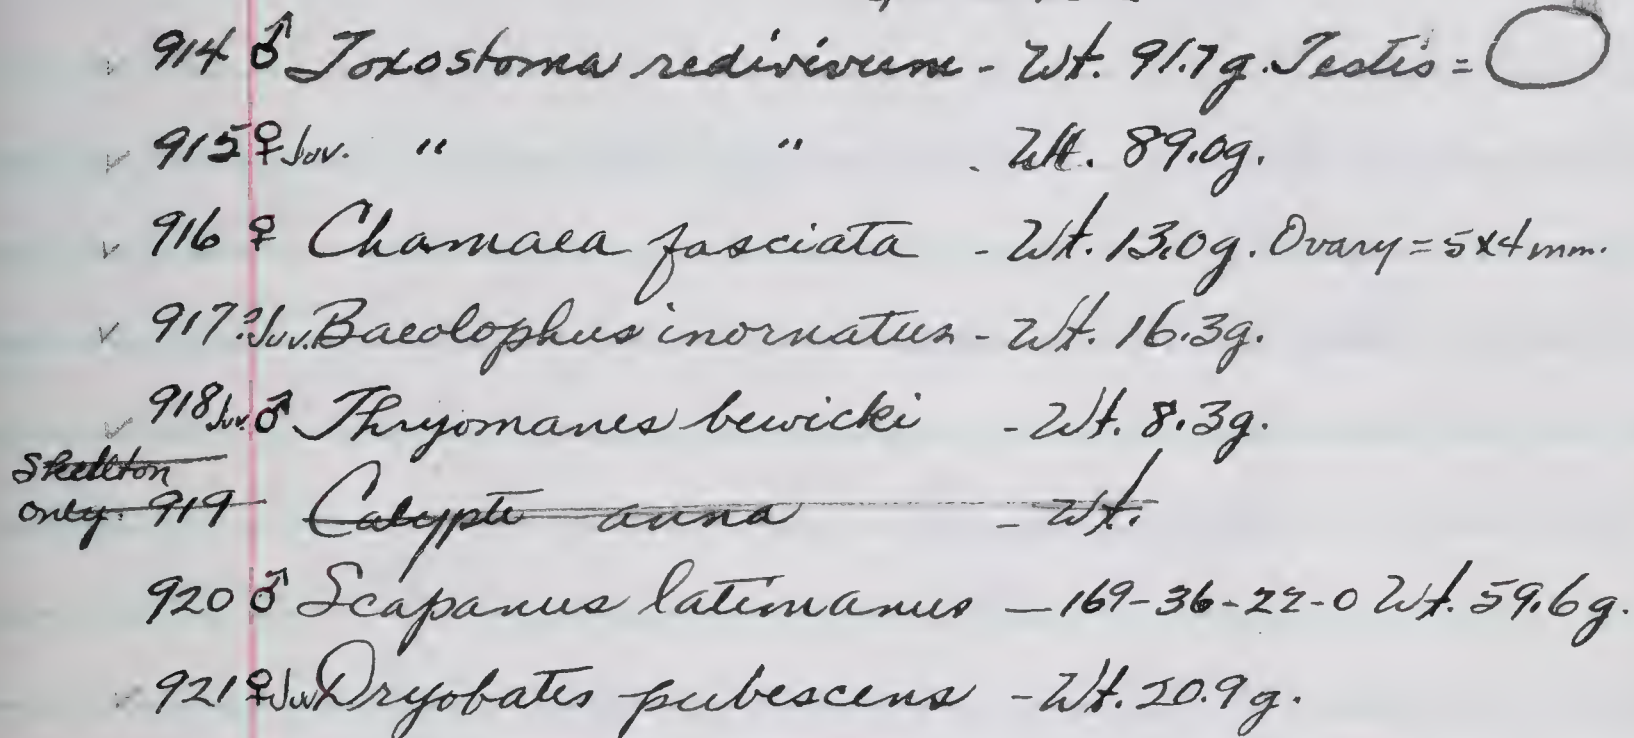 ✓ 914 ♂ Toxostoma redivivum - Wt. 91.7g. Testis =
✓ 915 ♀ Juv. " " - Wt. 89.0g.
✓ 916 ♀ Chamaea fasciata - Wt. 13.0g. Ovary = 5x4 mm.
✓ 917 ? Juv. Baeolophus inornatus - Wt. 16.3g.
✓ 918 Juv. ♂ Thryomanes bewicki - Wt. 8.3g.
Skeleton
only. 919 Calypte anna - Wt.
920 ♂ Scapanus latimanus — 169-36-22-0 Wt. 59.6g.
✓ 921 ♀ Juv. Dryobates pubescens - Wt. 20.9g.